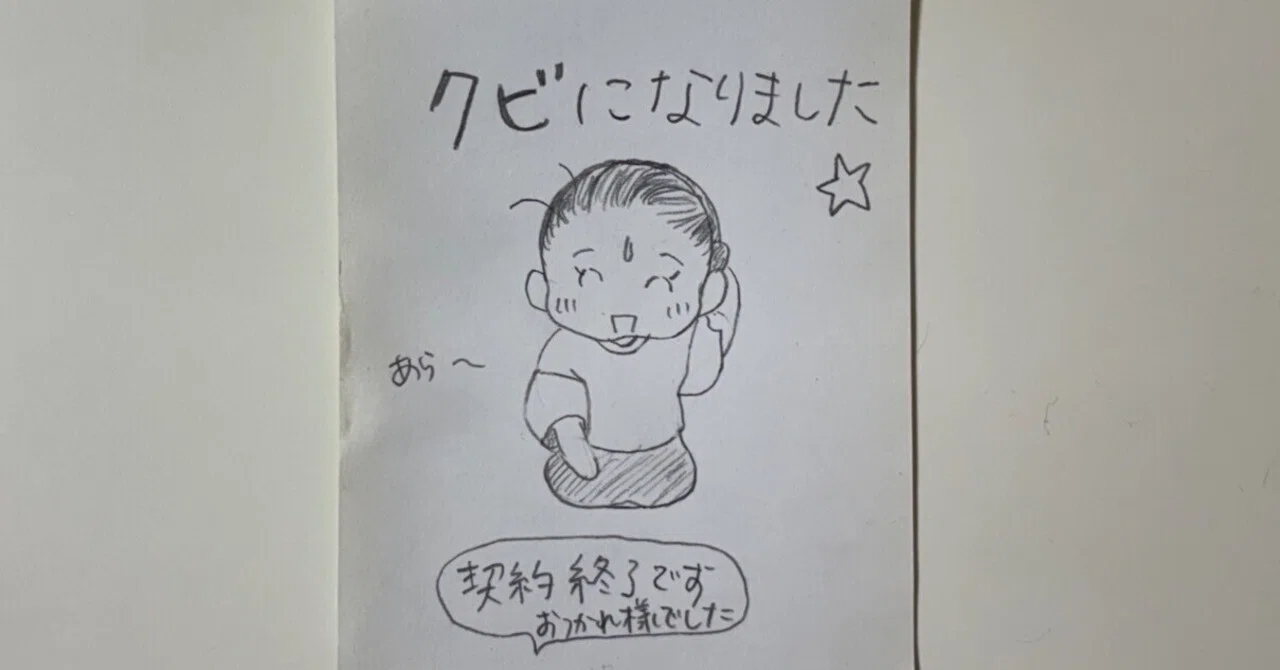 クビになりました
あら〜
契約終了です
おつかれ様でした